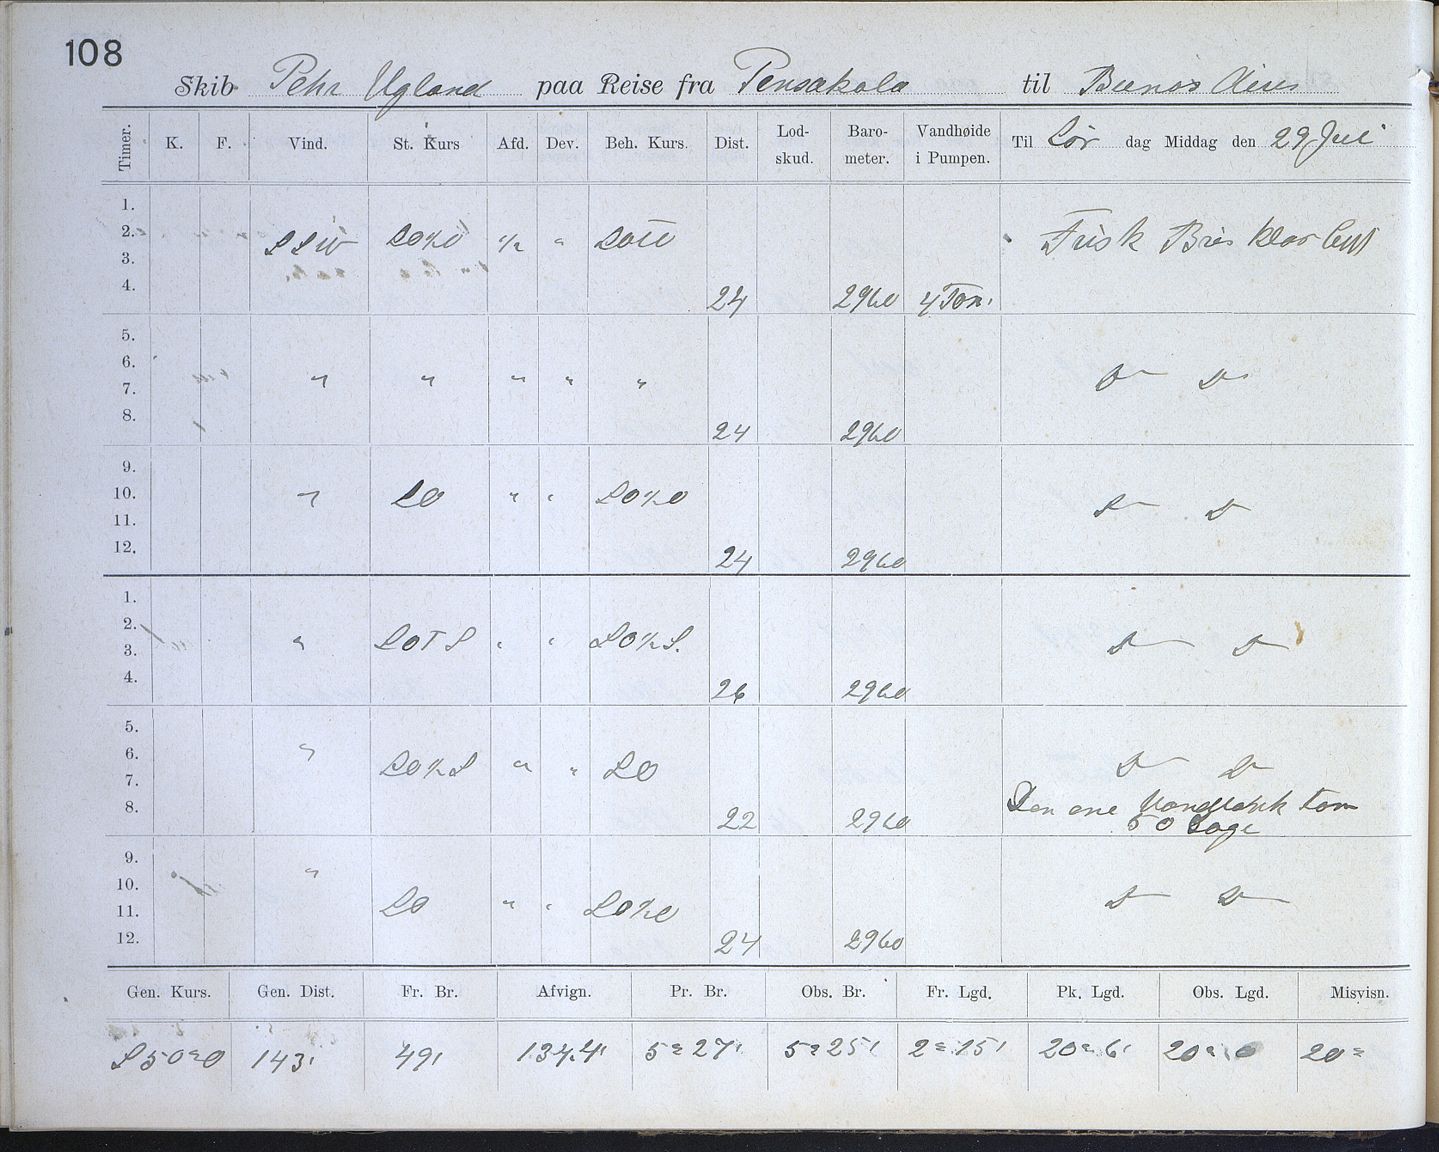 108
Skib Pehr Ugland paa Reise fra Pensakola til Buenos Aires
Timer. K. F. Vind. St. Kurs Afd. Dev. Beh. Kurs. Dist. Lod-skud. Baro-meter. Vandhøide i Pumpen. Til Lør dag Middag den 29 Juli
1.
2. SSW SO½O ½ " SOTO Frisk Bris klar luft
3.
4. 24 2960 4 Tom.
5.
6.
7. " " " " " D D
8. 24 2960
9.
10. " SO " " SO½O D D
11.
12. 24 2960
1.
2.
3. " SOTS " " SO½S. D D
4. 26 2960
5.
6. " SO½S " " SO D D
7.
8. 22 2960 Den ene Vandtank tom
50 Dage
9.
10. "
11. SO " " SO½O D D
12. 24 2960
Gen. Kurs. Gen. Dist. Fr. Br. Afvign. Pr. Br. Obs. Br. Fr. Lgd. Pk. Lgd. Obs. Lgd. Misvisn.
S 50° O 143' 49' 134,4' 5° 27' 5° 25' 2° 15' 20° 6' 20° 20°